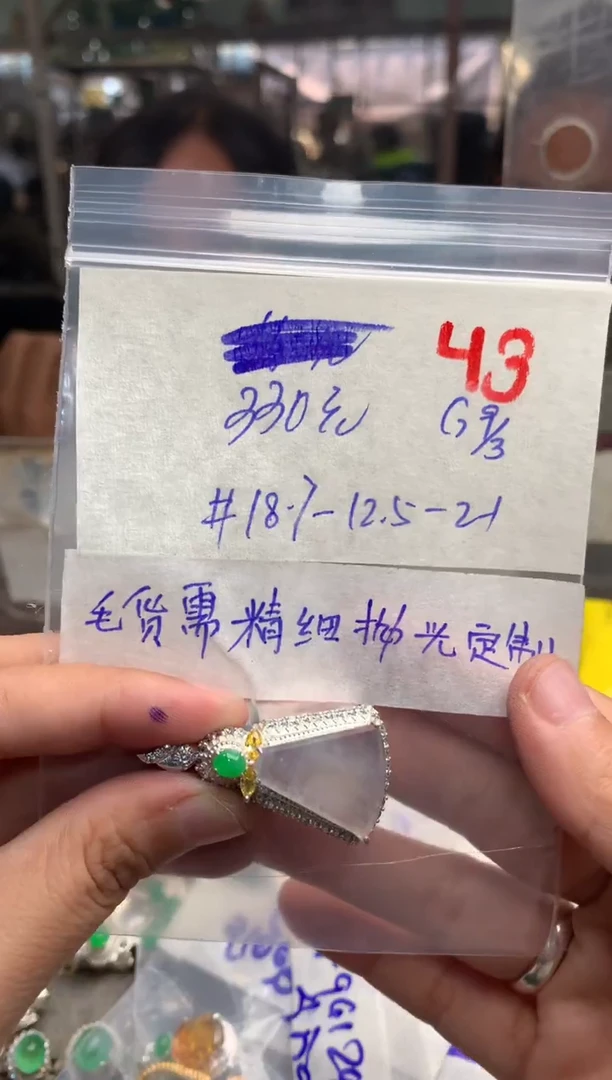 43
330元
G 9/3
#18.7-12.5-21
毛货需精细抛光定制